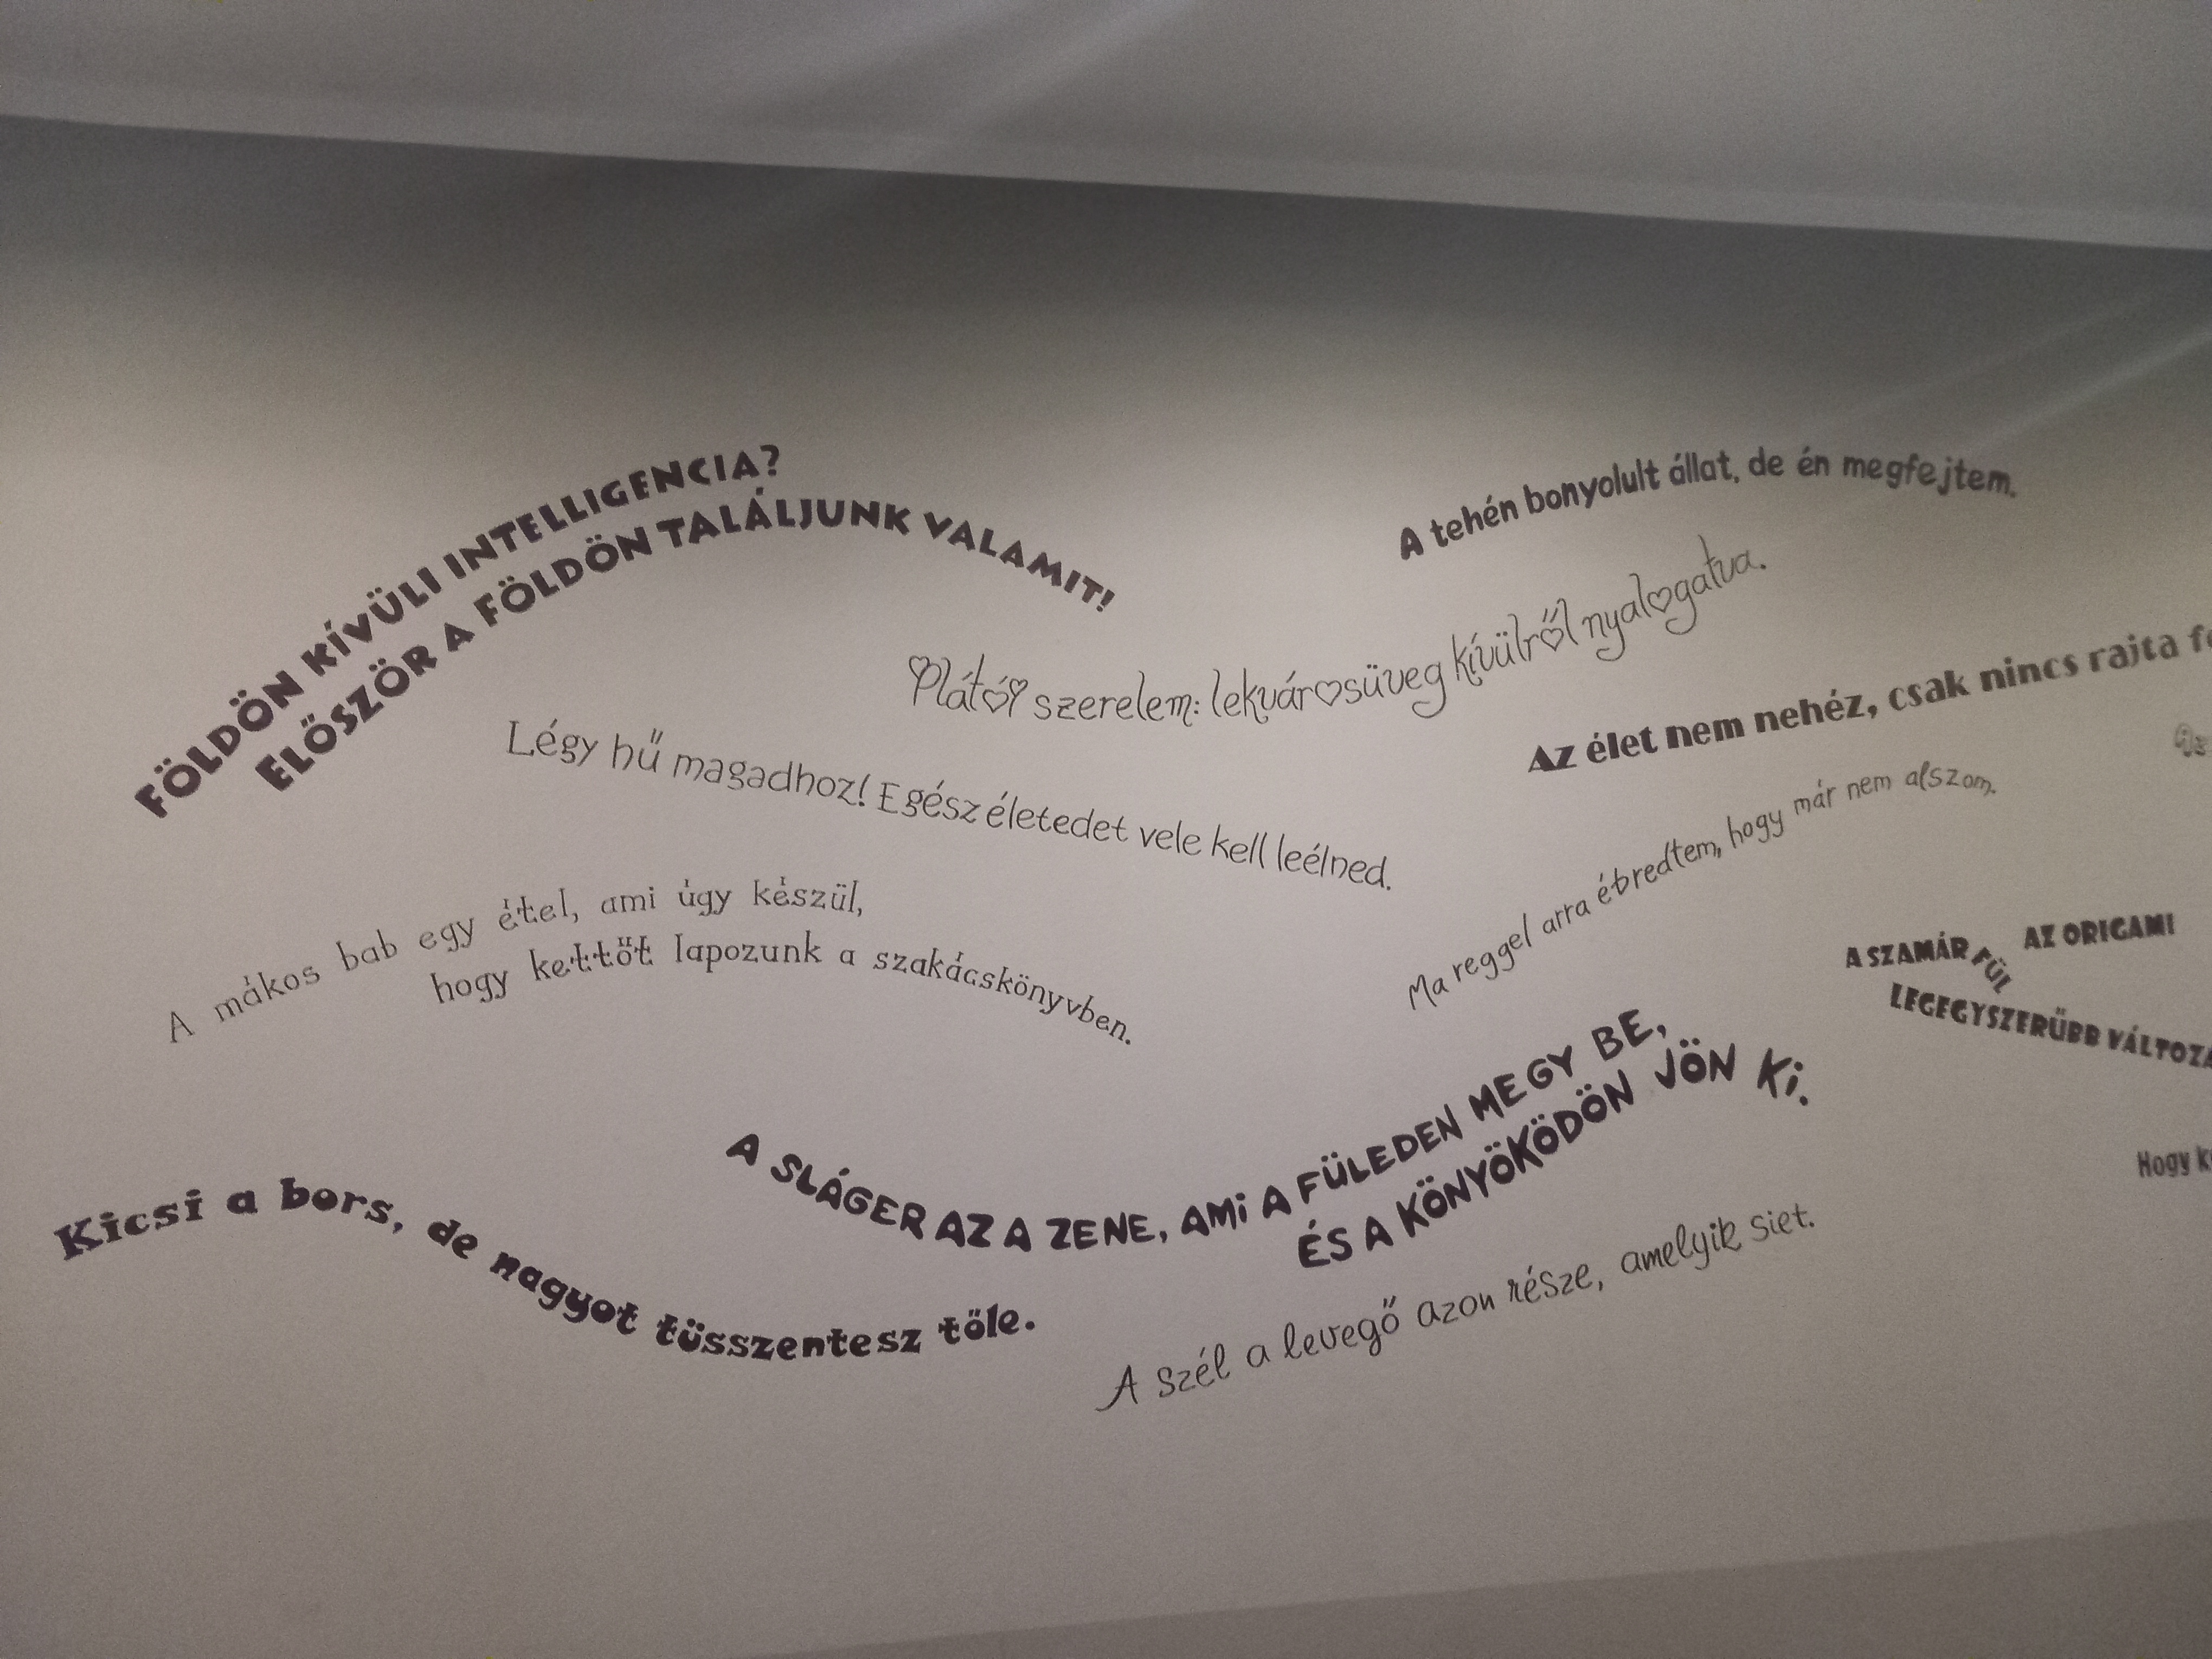 FÖLDÖN KÍVÜLI INTELLIGENCIA?
ELŐSZÖR A FÖLDÖN TALÁLJUNK VALAMIT!
A tehén bonyolult állat, de én megfejtem.
Plátói szerelem: lekvárosüveg kívülről nyalogatva.
Légy hű magadhoz! Egész életedet vele kell leélned.
Az élet nem nehéz, csak nincs rajta
Ma reggel arra ébredtem, hogy már nem alszom.
A mákos bab egy étel, ami úgy készül,
hogy kettőt lapozunk a szakácskönyvben.
A SZAMÁRFÜL AZ ORIGAMI
LEGEGYSZERŰBB
A SLÁGER AZ A ZENE, AMI A FÜLEDEN MEGY BE,
ÉS A KÖNYÖKÖDÖN JÖN KI.
Kicsi a bors, de nagyot tüsszentesz tőle.
A szél a levegő azon része, amelyik siet.
Hogy